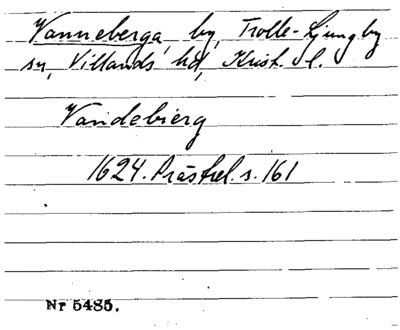 Vanneberga, by, Trolle-Ljungby
sn, Villands hd, Krist. l.
Vandebierg
1624. Prästrel. s. 161
Nr 5485.